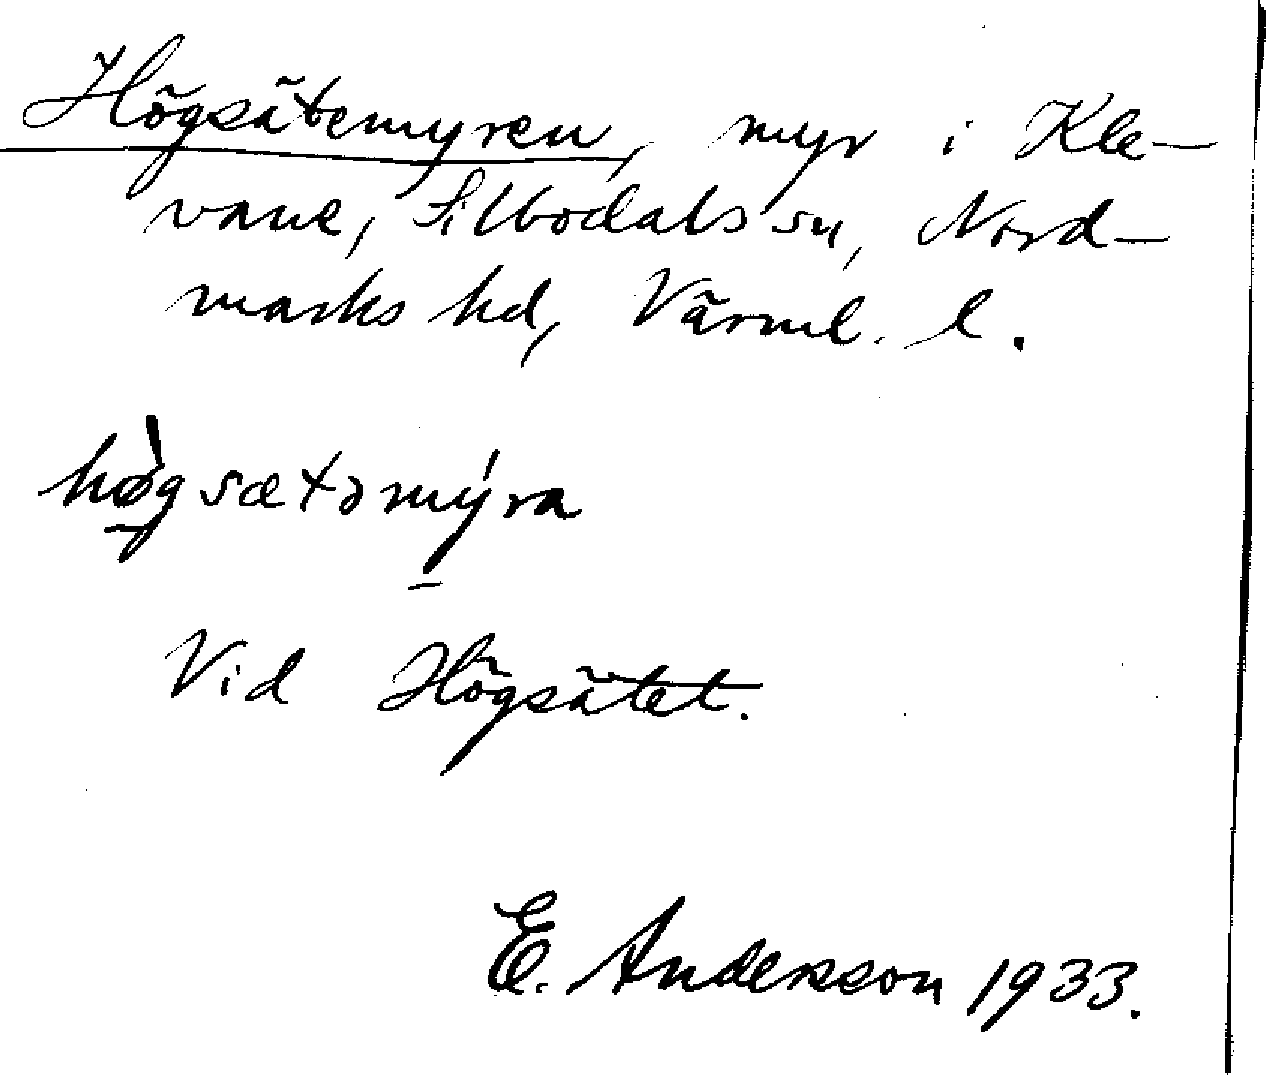 Högsätemyren, myr i Kle-
vane, Silbodals sn, Nord-
marks hd, Värml. l.
hø̀gsætəmýra
Vid Högsätet.
E. Andersson 1933.